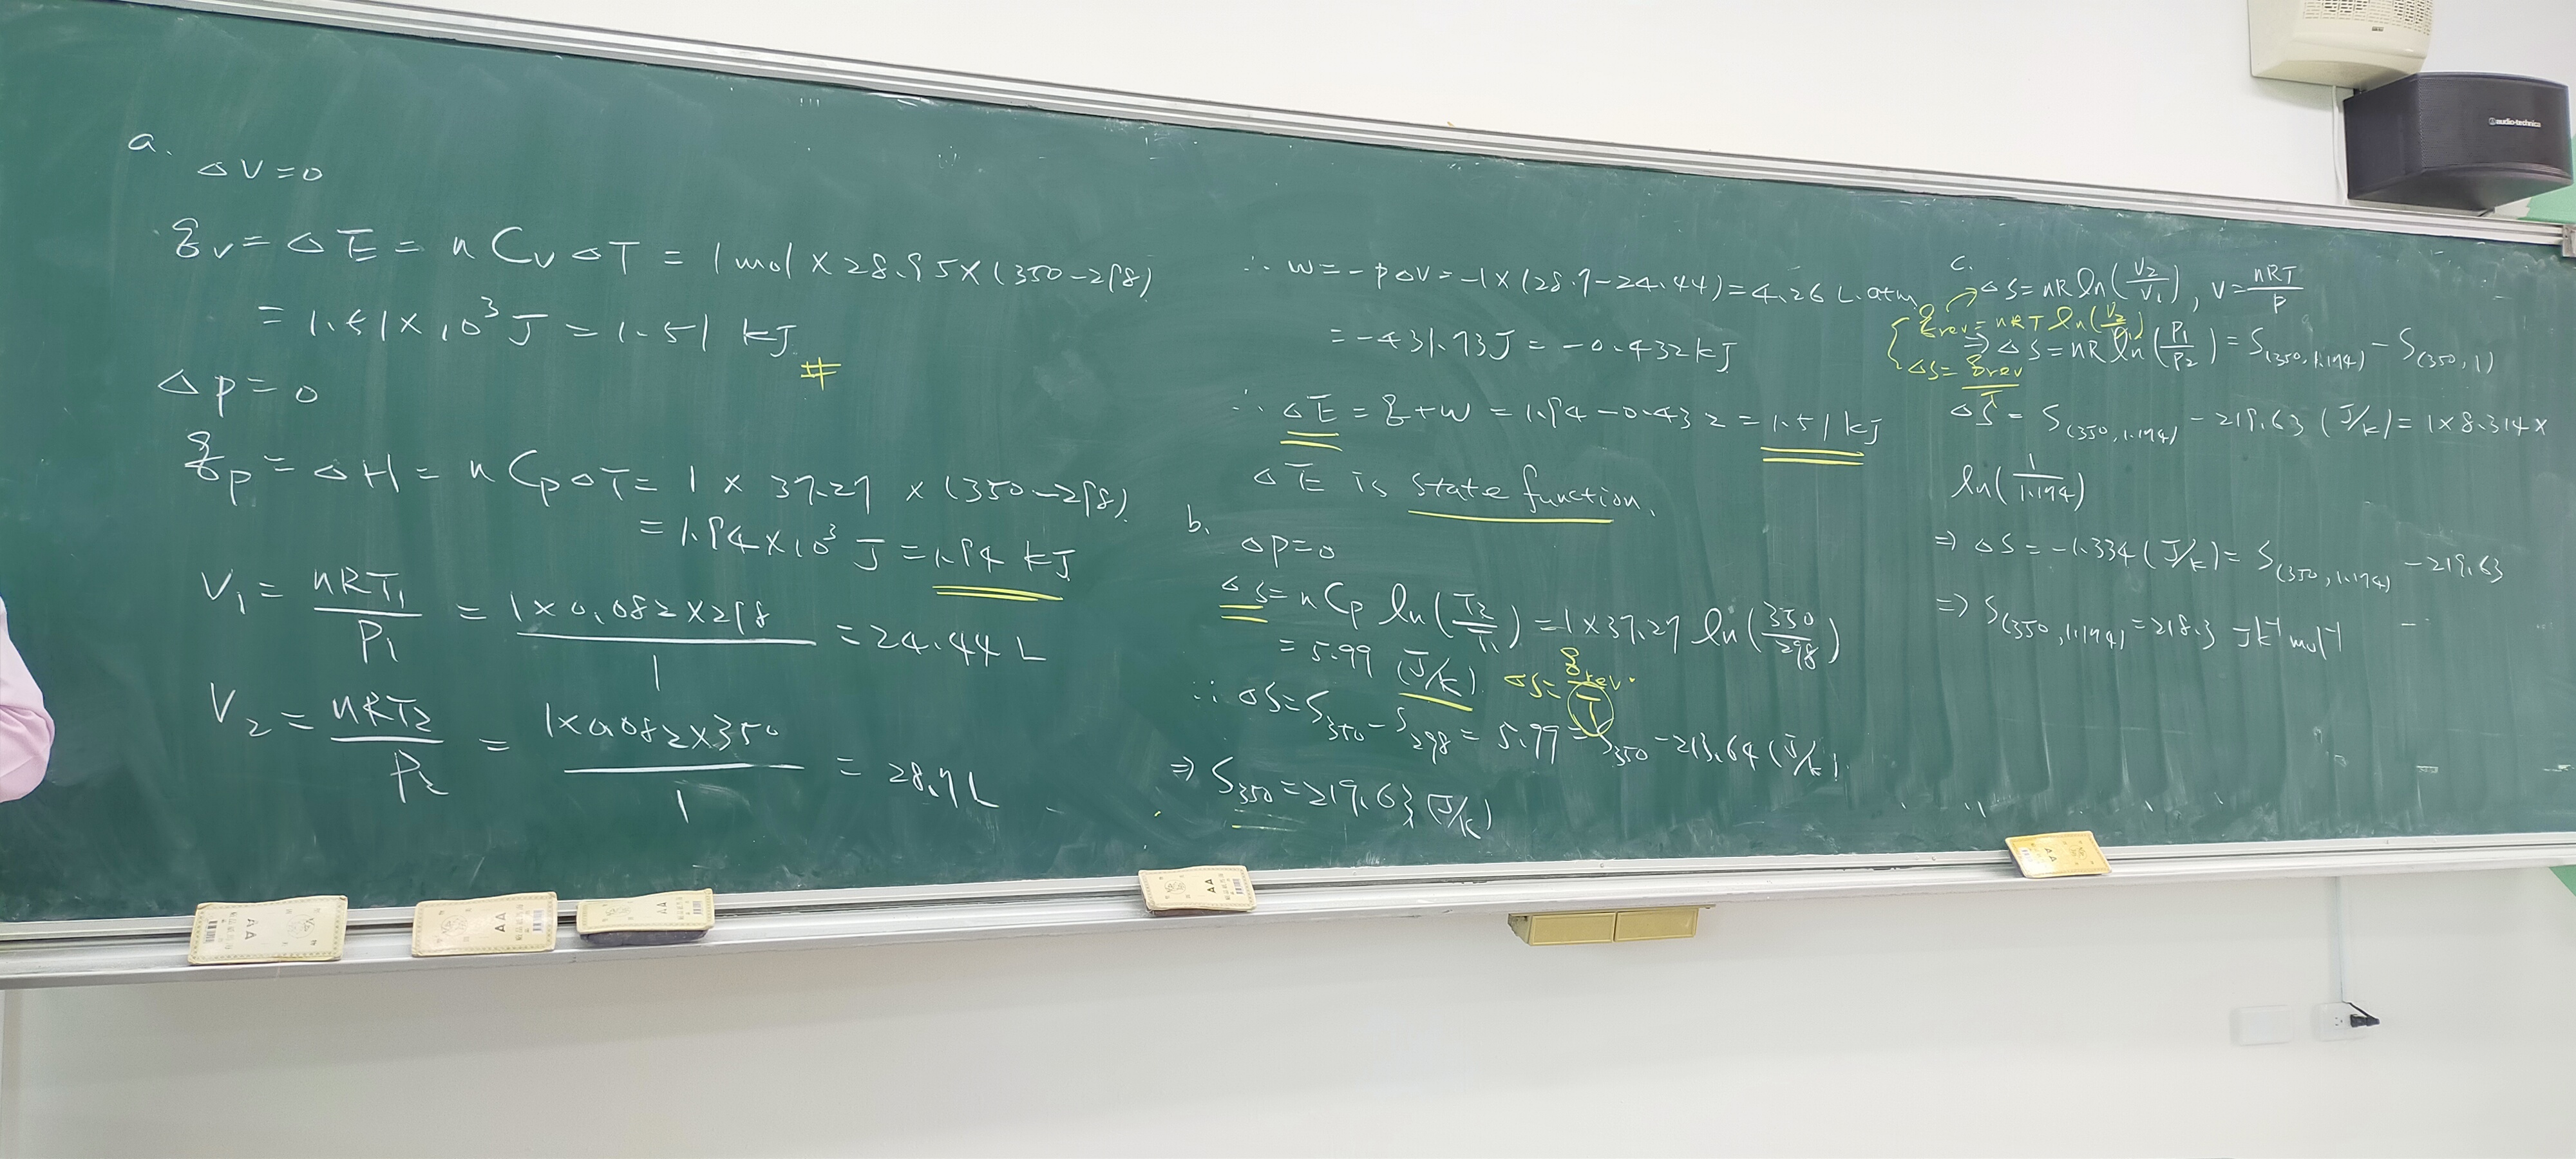 a.
ΔV=0
qv = ΔE = nCvΔT = 1mol×28.95×(350-298)
= 1.51×10³J = 1.51 kJ #
Δp=0
qp = ΔH = nCpΔT = 1 × 37.27 × (350-298)
= 1.94×10³ J = 1.94 kJ
V₁ = nRT₁/P₁ = 1×0.082×298/1 = 24.44 L
V₂ = nRT₂/P₂ = 1×0.082×350/1 = 28.7 L
∴ w = -pΔV = -1×(28.7-24.44) = 4.26 L.atm
= -431.73J = -0.432kJ
∴ ΔE = q+w = 1.94-0.432 = 1.51 kJ
ΔE is state function.
b.
ΔP=0
ΔS = nCp ln(T₂/T₁) = 1×37.27 ln(350/298)
= 5.99 (J/K) ΔS = qrev/T
∴ ΔS = S350 - S298 = 5.99 = S350 - 213.64 (J/K)
⇒ S350 = 219.63 (J/K)
c.
ΔS = nR ln(V₂/V₁), V = nRT/P
qrev = nRT ln(V₂/V₁)
⇒ ΔS = nR ln(P₁/P₂) = S(350, 1.174) - S(350, 1)
ΔS = qrev/T
ΔS = S(350, 1.174) - 219.63 (J/K) = 1×8.314×
ln(1/1.174)
⇒ ΔS = -1.334 (J/K) = S(350, 1.174) - 219.63
⇒ S(350, 1.174) = 218.3 JK⁻¹mol⁻¹
audio-technica